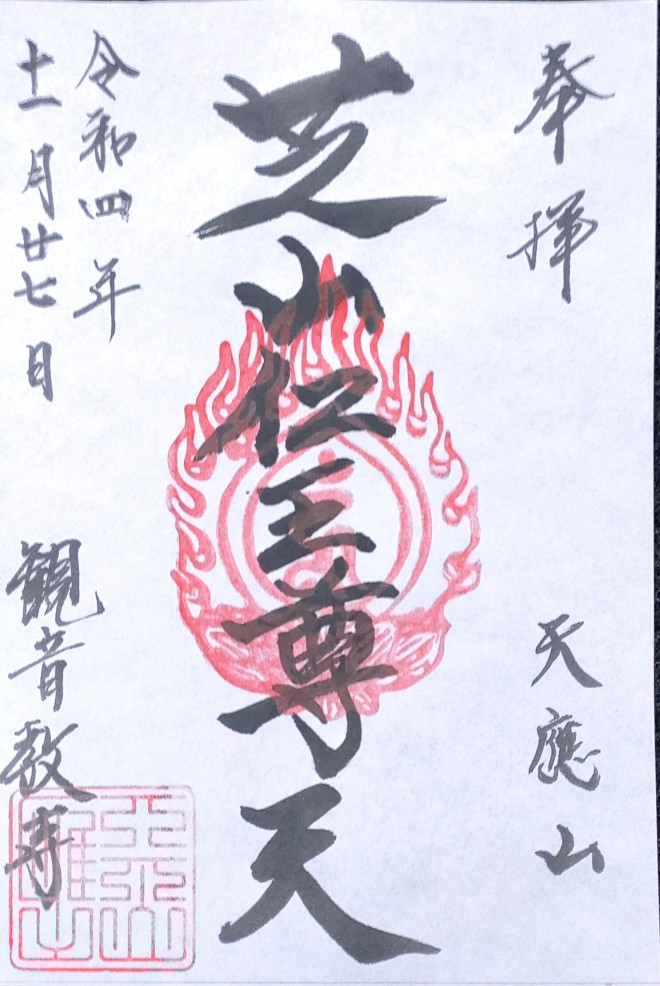 奉拝
天應山
芝山仁王尊天
令和四年
十一月廿七日
観音教寺